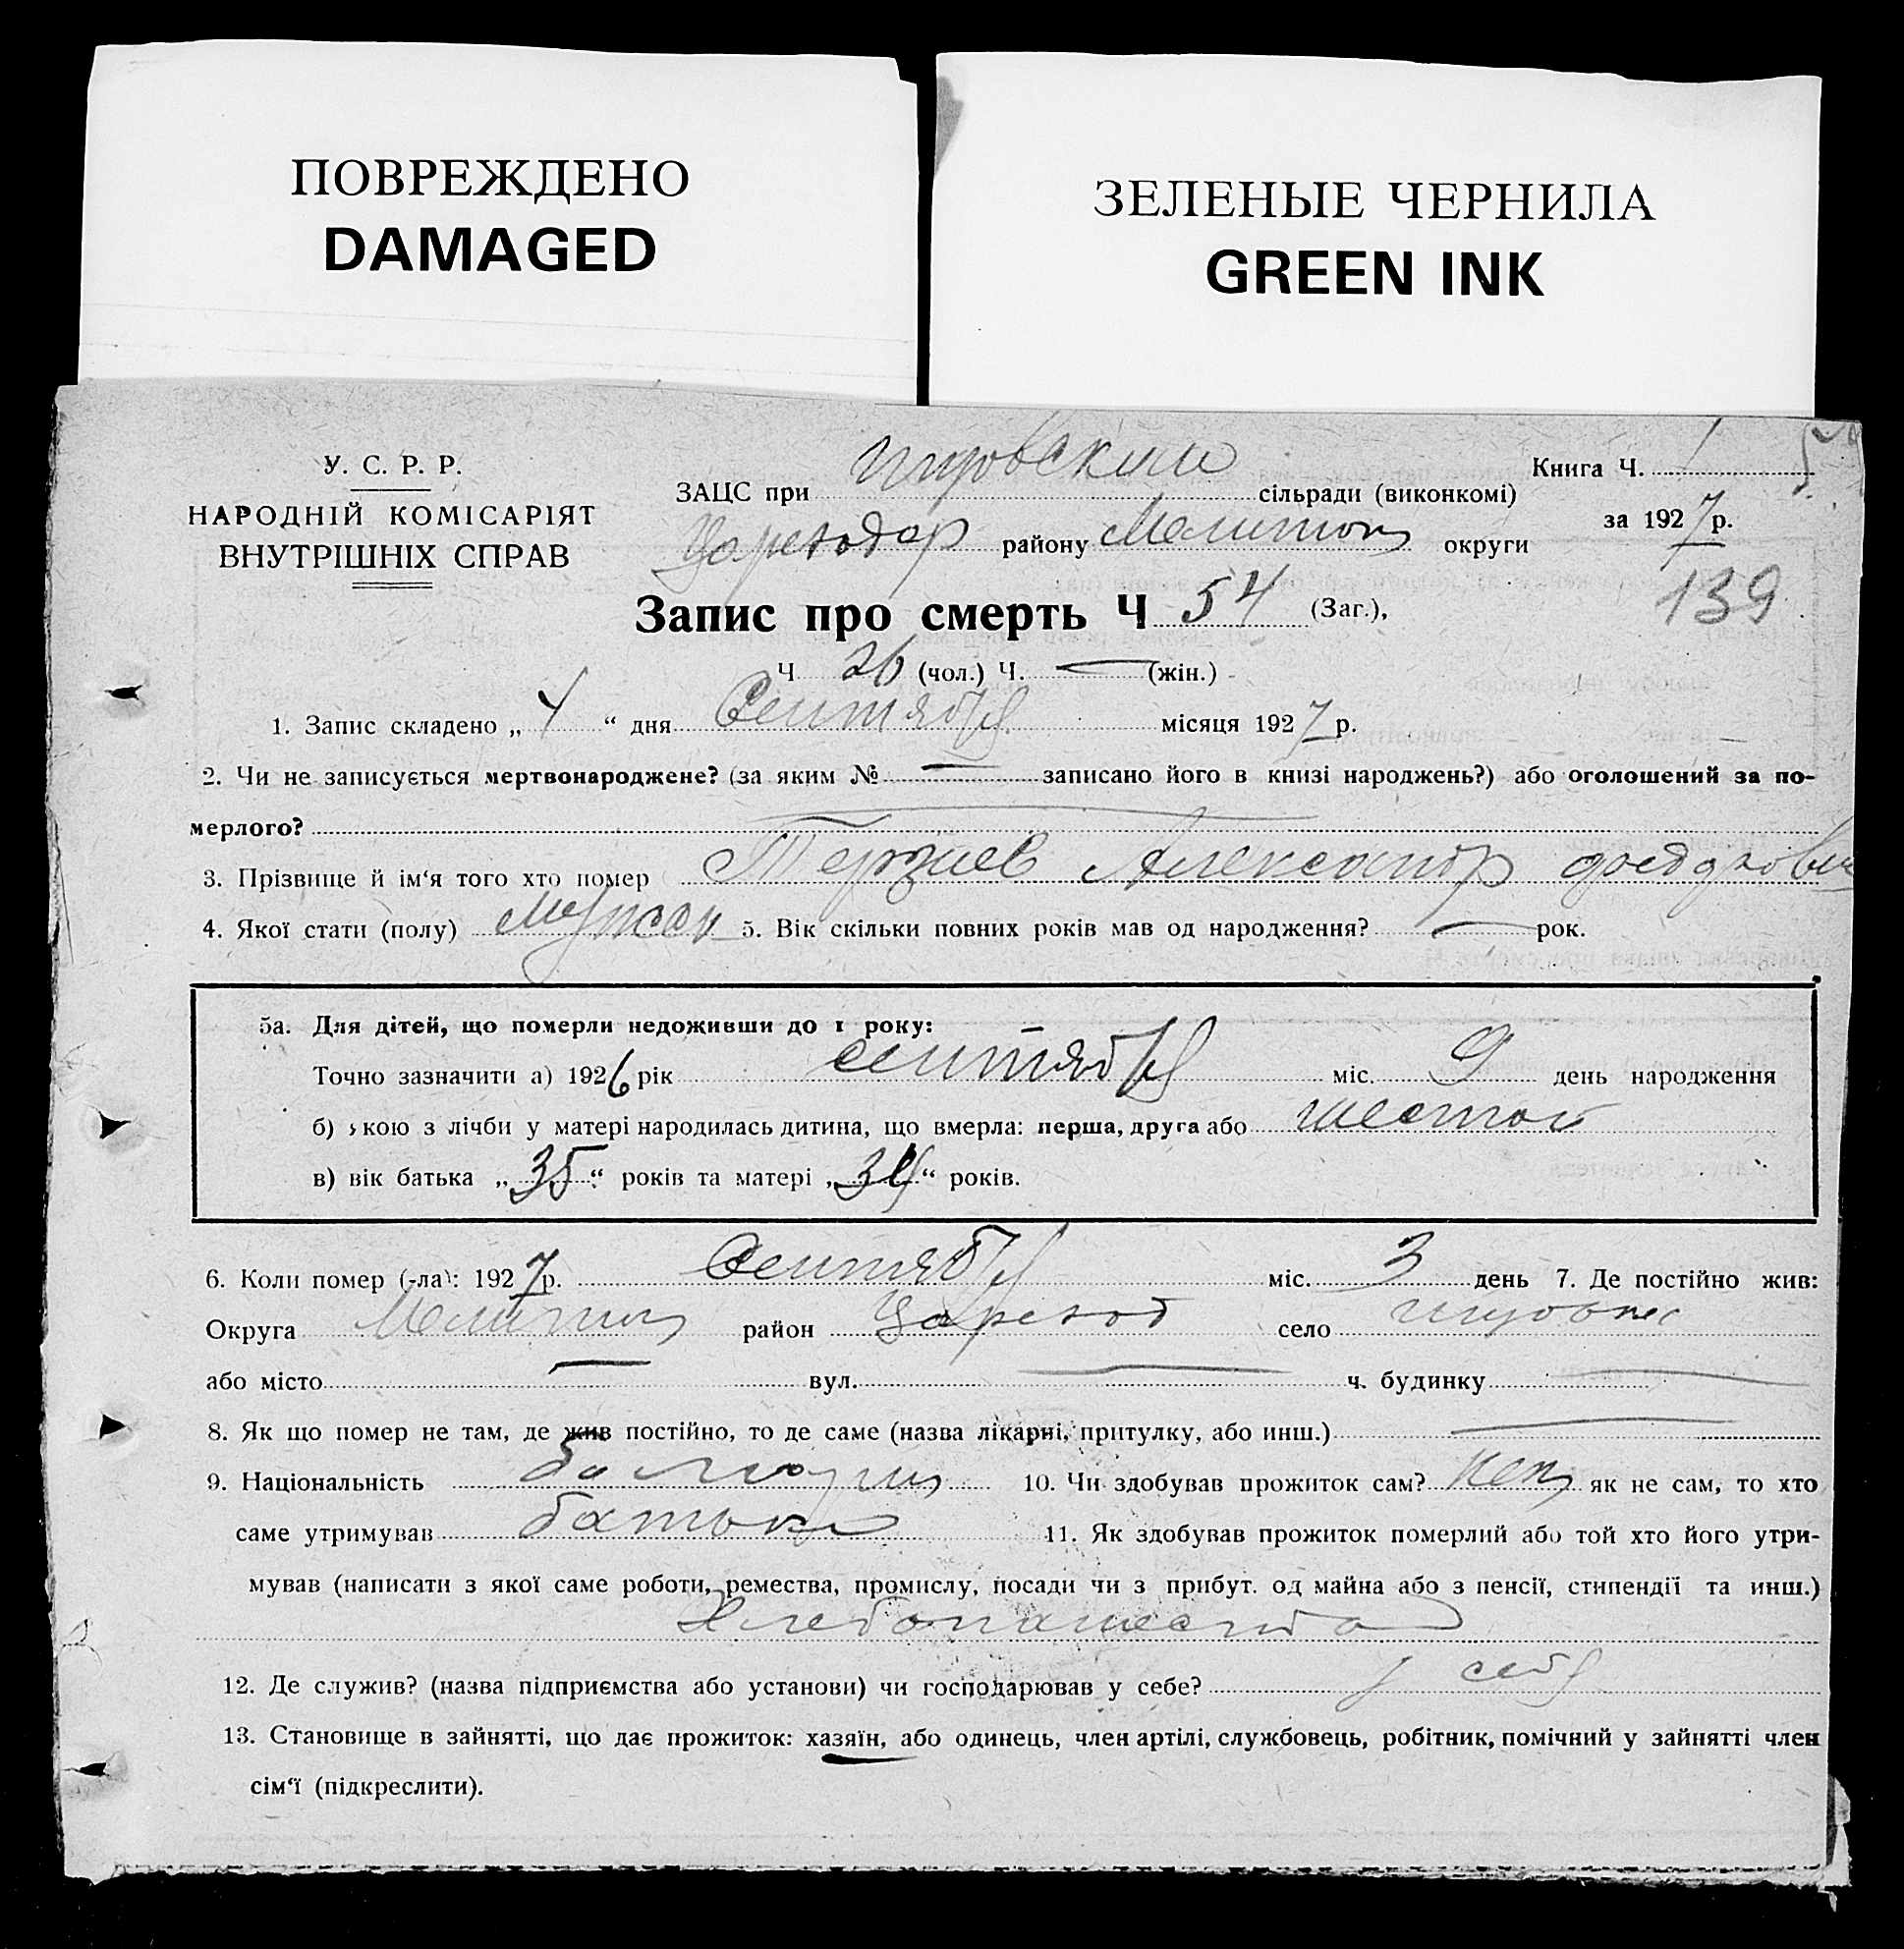 ПОВРЕЖДЕНО
DAMAGED
ЗЕЛЕНЫЕ ЧЕРНИЛА
GREEN INK
У. С. Р. Р.
НАРОДНІЙ КОМІСАРІЯТ
ВНУТРІШНІХ СПРАВ
Книга Ч. 1
ЗАЦС при сільради (виконкомі)
за 1927 р.
району Мелитоп округи
139
Запис про смерть Ч 54 (Заг.),
Ч 26 (чол.) Ч. — (жін.)
1. Запис складено „ 4 “ дня Сентября місяця 1927 р.
2. Чи не записується мертвонароджене? (за яким № — записано його в книзі народжень?) або оголошений за по-
мерлого? —
3. Прізвище й ім‘я того хто помер Терзиев Александр
4. Якої стати (полу) Мужск 5. Вік скільки повних років мав од народження? — рок.
5а. Для дітей, що померли недоживши до 1 року:
Точно зазначити а) 1926 рік сентября міс. 9 день народження
б) якою з лічби у матері народилась дитина, що вмерла: перша, друга або шестой
в) вік батька „35“ років та матері „34“ років.
6. Коли помер (-ла): 1927 р. Сентября міс. 3 день 7. Де постійно жив:
Округа Мелитоп район Царевод село
або місто — вул. — ч. будинку —
8. Як що помер не там, де жив постійно, то де саме (назва лікарні, притулку, або инш.) —
9. Національність болгарин 10. Чи здобував прожиток сам? нет як не сам, то хто
саме утримував батько 11. Як здобував прожиток померлий або той хто його утри-
мував (написати з якої саме роботи, ремества, промислу, посади чи з прибут. од майна або з пенсії, стипендії та инш.)
Хлебопашество
12. Де служив? (назва підприємства або установи) чи господарював у себе? у себя
13. Становище в зайнятті, що дає прожиток: хазяїн, або одинець, член артілі, службовець, робітник, помічний у зайнятті член
сім‘ї (підкреслити).